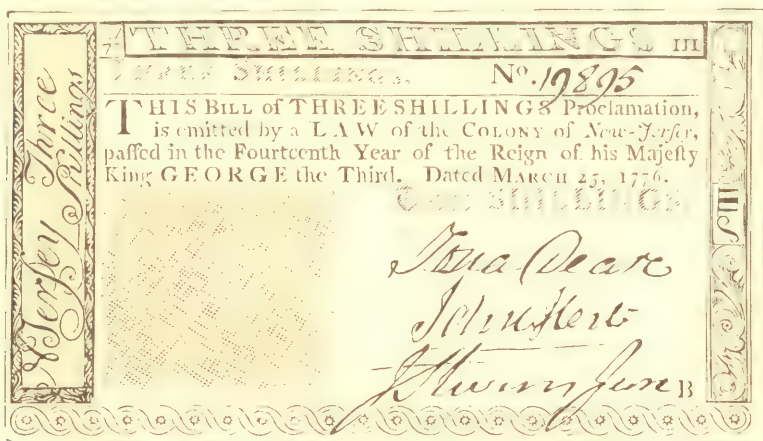 THREE SHILLINGS III
THREE SHILLINGS.
No. 19895
THIS BILL of THREE SHILLINGS Proclamation,
is emitted by a LAW of the COLONY of New-Jersey,
passed in the Fourteenth Year of the Reign of his Majesty
King GEORGE the Third. Dated MARCH 25, 1776.
SHILLINGS.
Jona Deare
John
Junr B
N Jersey Three
Shillings
IIIS